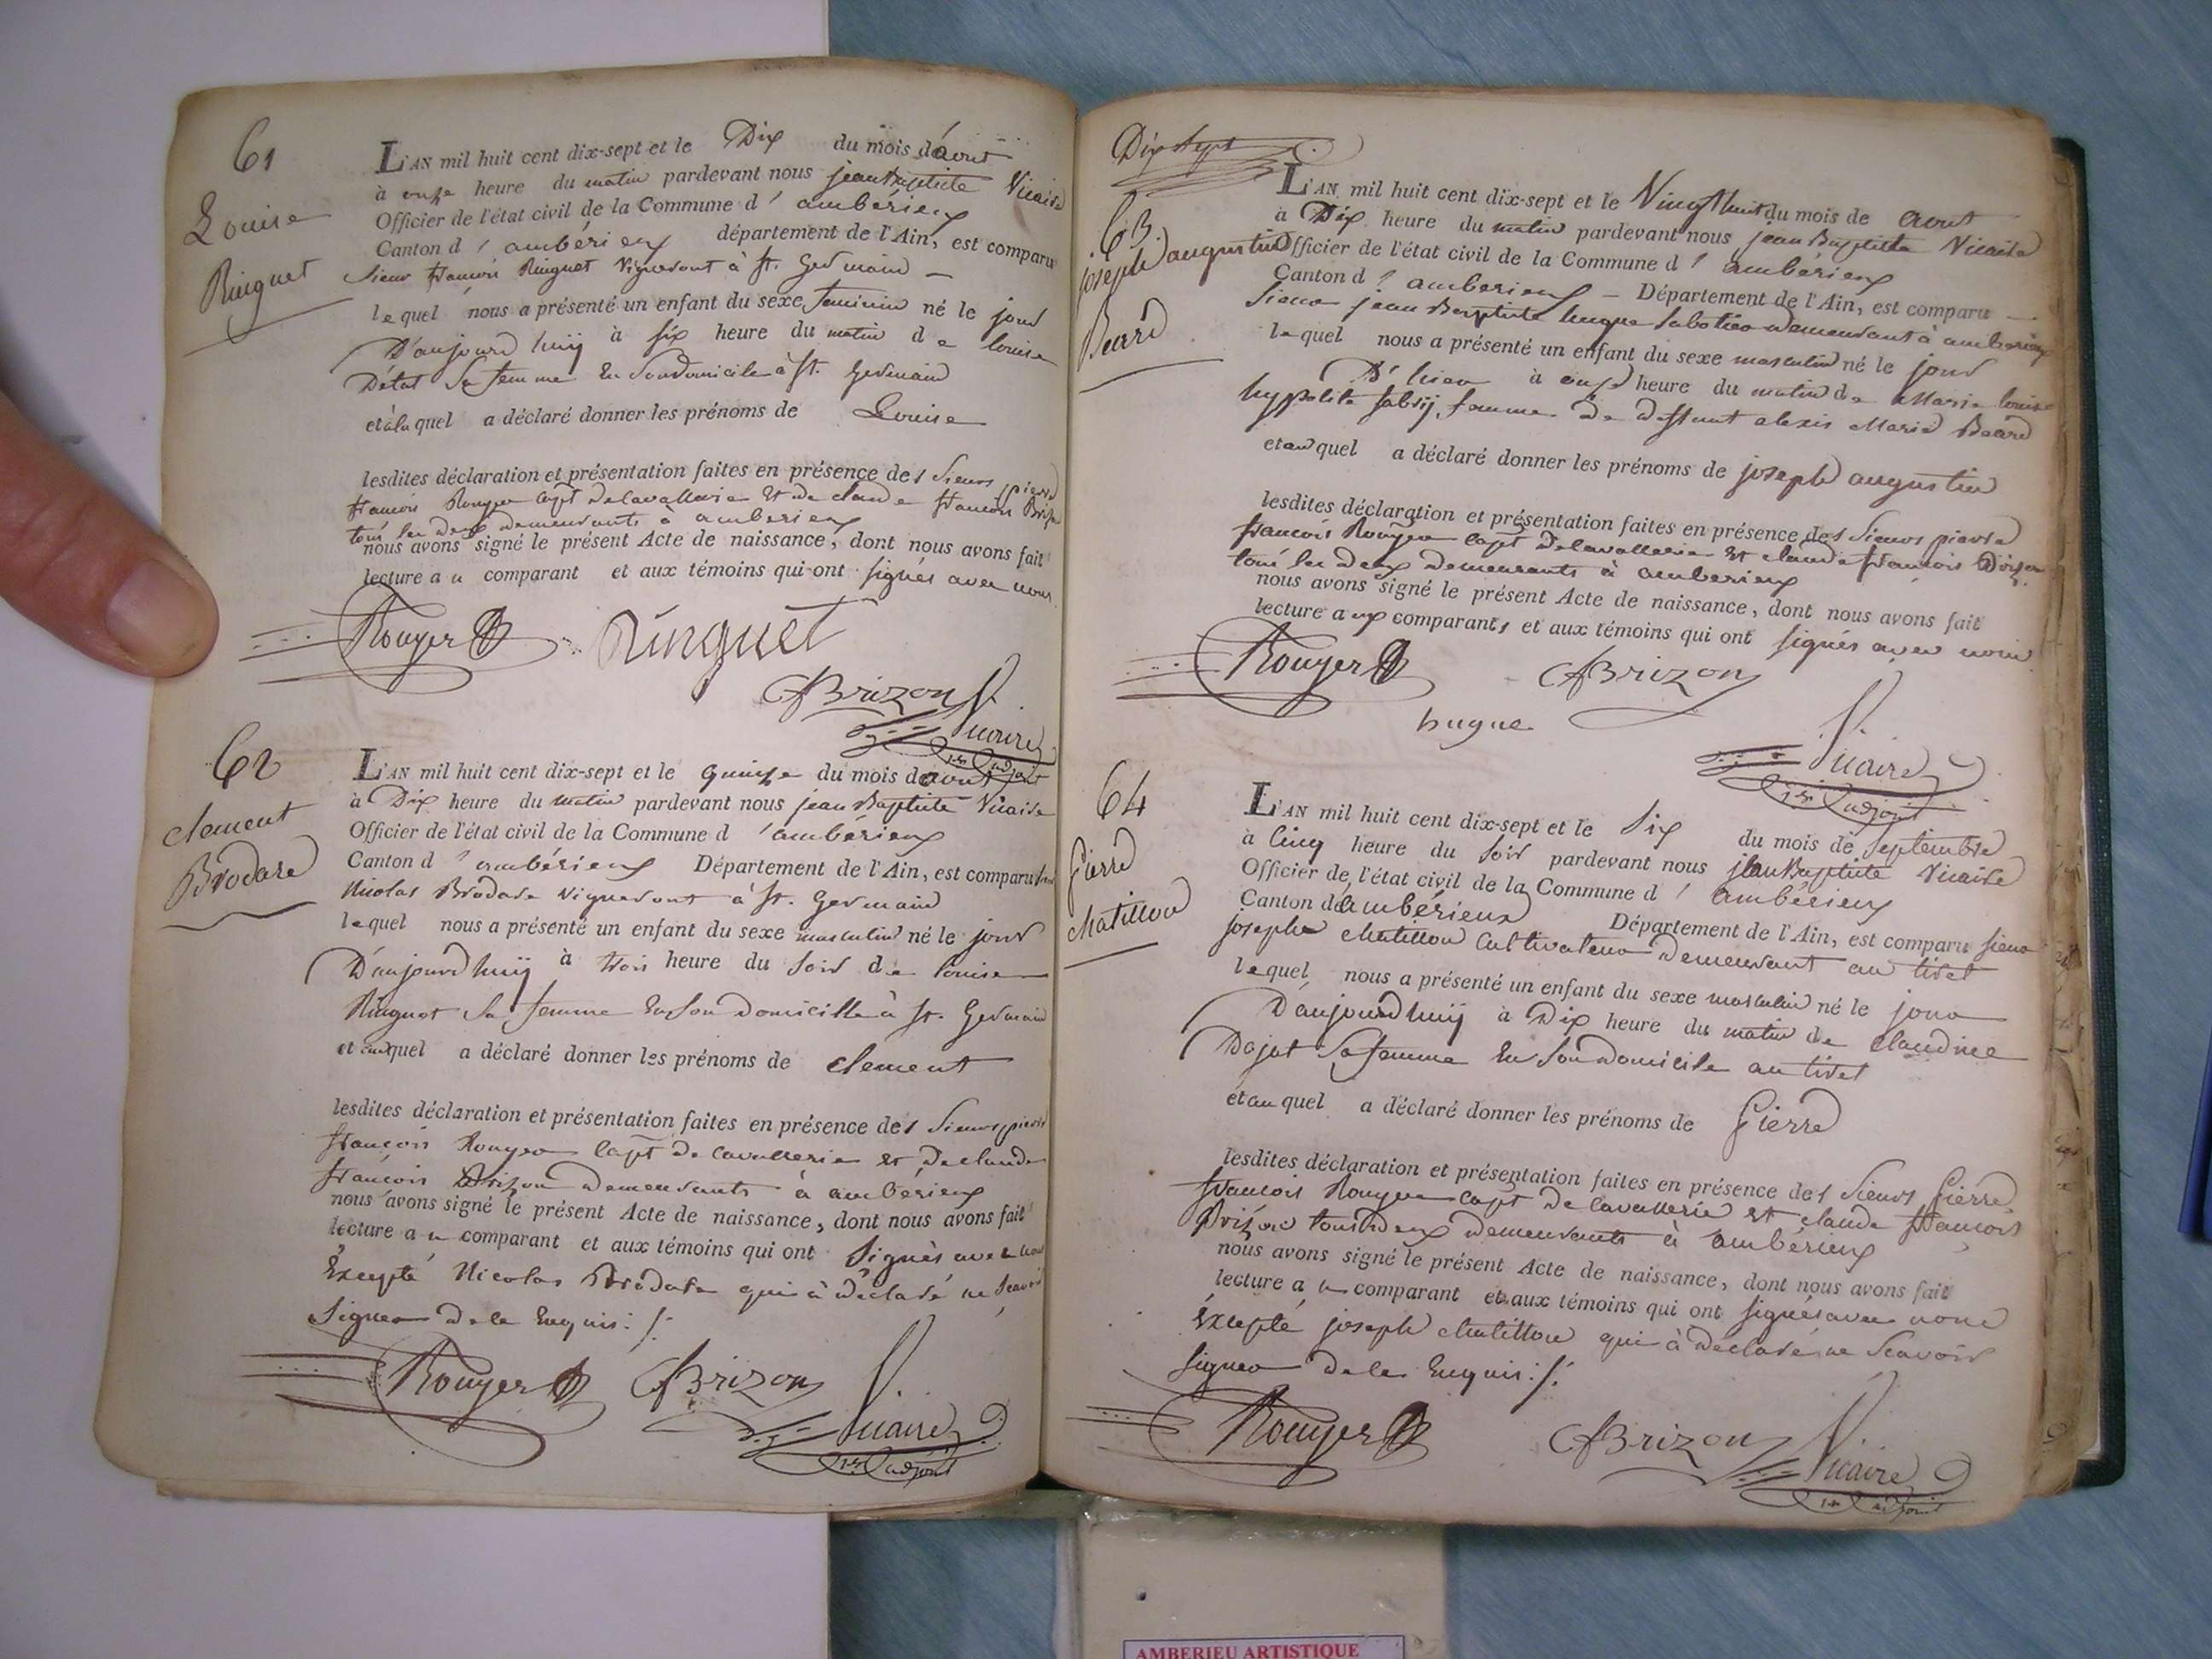 61
Louise
Ringuet
L'AN mil huit cent dix-sept et le Dix du mois d'aout
à onze heure du matin pardevant nous jean Baptiste Vicaire
Officier de l'état civil de la Commune d' ambérieux
Canton d' ambérieux département de l'Ain, est comparu
Sieur francois Ringuet Vigneront à St. Germain
lequel nous a présenté un enfant du sexe feminin né le jour
D'aujourd huij à six heure du matin de louise
Détat Sa femme En Son domicile à St. Germain
et à la quel a déclaré donner les prénoms de Louise
lesdites déclaration et présentation faites en présence des Sieurs pierre
francois Rouyer Capt de Cavallerie Et de claude francois Brizon
tous les deux demeurants à amberieux
nous avons signé le présent Acte de naissance, dont nous avons fait
lecture au comparant et aux témoins qui ont signés avec nous
Rouyer Ringuet
CfBrizon
Vicaire
1er adjoint
62
clement
Brodare
L'AN mil huit cent dix-sept et le quinze du mois d'aout
à Dix heure du matin pardevant nous jean Baptiste Vicaire
Officier de l'état civil de la Commune d' ambérieux
Canton d' ambérieux Département de l'Ain, est comparu
Nicolas Brodare Vigneront à St. Germain
lequel nous a présenté un enfant du sexe masculin né le jour
D'aujourd huij à trois heure du Soir de louise
Ringuet Sa femme En Son Domicille à St. Germain
et auquel a déclaré donner les prénoms de clement
lesdites déclaration et présentation faites en présence des Sieurs pierre
françois Rouyer Capt de Cavallerie et De claude
francois Brizon demeurants à ambérieux
nous avons signé le présent Acte de naissance, dont nous avons fait
lecture au comparant et aux témoins qui ont Signés avec nous
Excepté Nicolas Brodare qui à déclaré ne Scavoir
Signer de le Enquis :/:
Rouyer CfBrizon Vicaire
1er adjoint
Dix Sept
63.
joseph augustin
Beard
L'AN mil huit cent dix-sept et le Vingt huit du mois de aout
à Dix heure du matin pardevant nous jean Baptiste Vicaire
Officier de l'état civil de la Commune d' ambérieux
Canton d' amberieux Département de l'Ain, est comparu
Sieur jean Baptiste hugue Sabotier demeurant à amberieux
lequel nous a présenté un enfant du sexe masculin né le jour
D'hier à onze heure du matin de Marie louise
hyppolite fabrij, femme de deffunt alexis Marie Beard
et au quel a déclaré donner les prénoms de joseph augustin
lesdites déclaration et présentation faites en présence des Sieurs pierre
francois Rouyer Capt de Cavallerie Et claude francois Brizon
tous les deux demeurants à amberieux
nous avons signé le présent Acte de naissance, dont nous avons fait
lecture aux comparants et aux témoins qui ont signés avec nous
Rouyer CfBrizon
hugue
Vicaire
1er adjoint
64
Pierre
Chatillon
L'AN mil huit cent dix-sept et le Six du mois de Septembre
à Cinq heure du Soir pardevant nous jean Baptiste Vicaire
Officier de l'état civil de la Commune d' ambérieux
Canton d'ambérieux Département de l'Ain, est comparu Sieur
joseph Chatillon Cultivateur demeurant au tiret
lequel nous a présenté un enfant du sexe masculin né le jour
D'aujourd huij à Dix heure du matin de Claudine
Dajat Sa femme En Son domicile au tiret
et au quel a déclaré donner les prénoms de Pierre
lesdites déclaration et présentation faites en présence des Sieurs Pierre
francois Rouyer Capt de Cavallerie et claude francois
Brizon tous deux demeurants à ambérieux
nous avons signé le présent Acte de naissance, dont nous avons fait
lecture au comparant et aux témoins qui ont signés avec nous
Excepté joseph Chatillon qui à déclaré ne Scavoir
signer de le Enquis :/:
Rouyer CfBrizon Vicaire
1er adjoint
AMBERIEU ARTISTIQUE